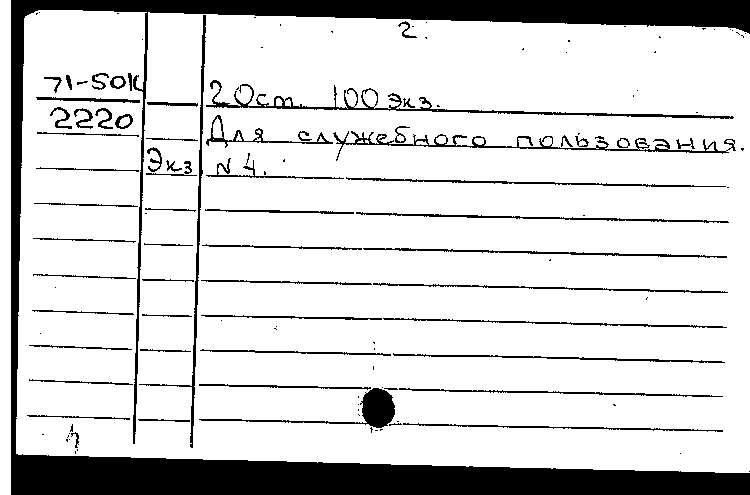 2.
71-50К
2220
20ст. 100 экз.
Для служебного пользования.
Экз N 4.